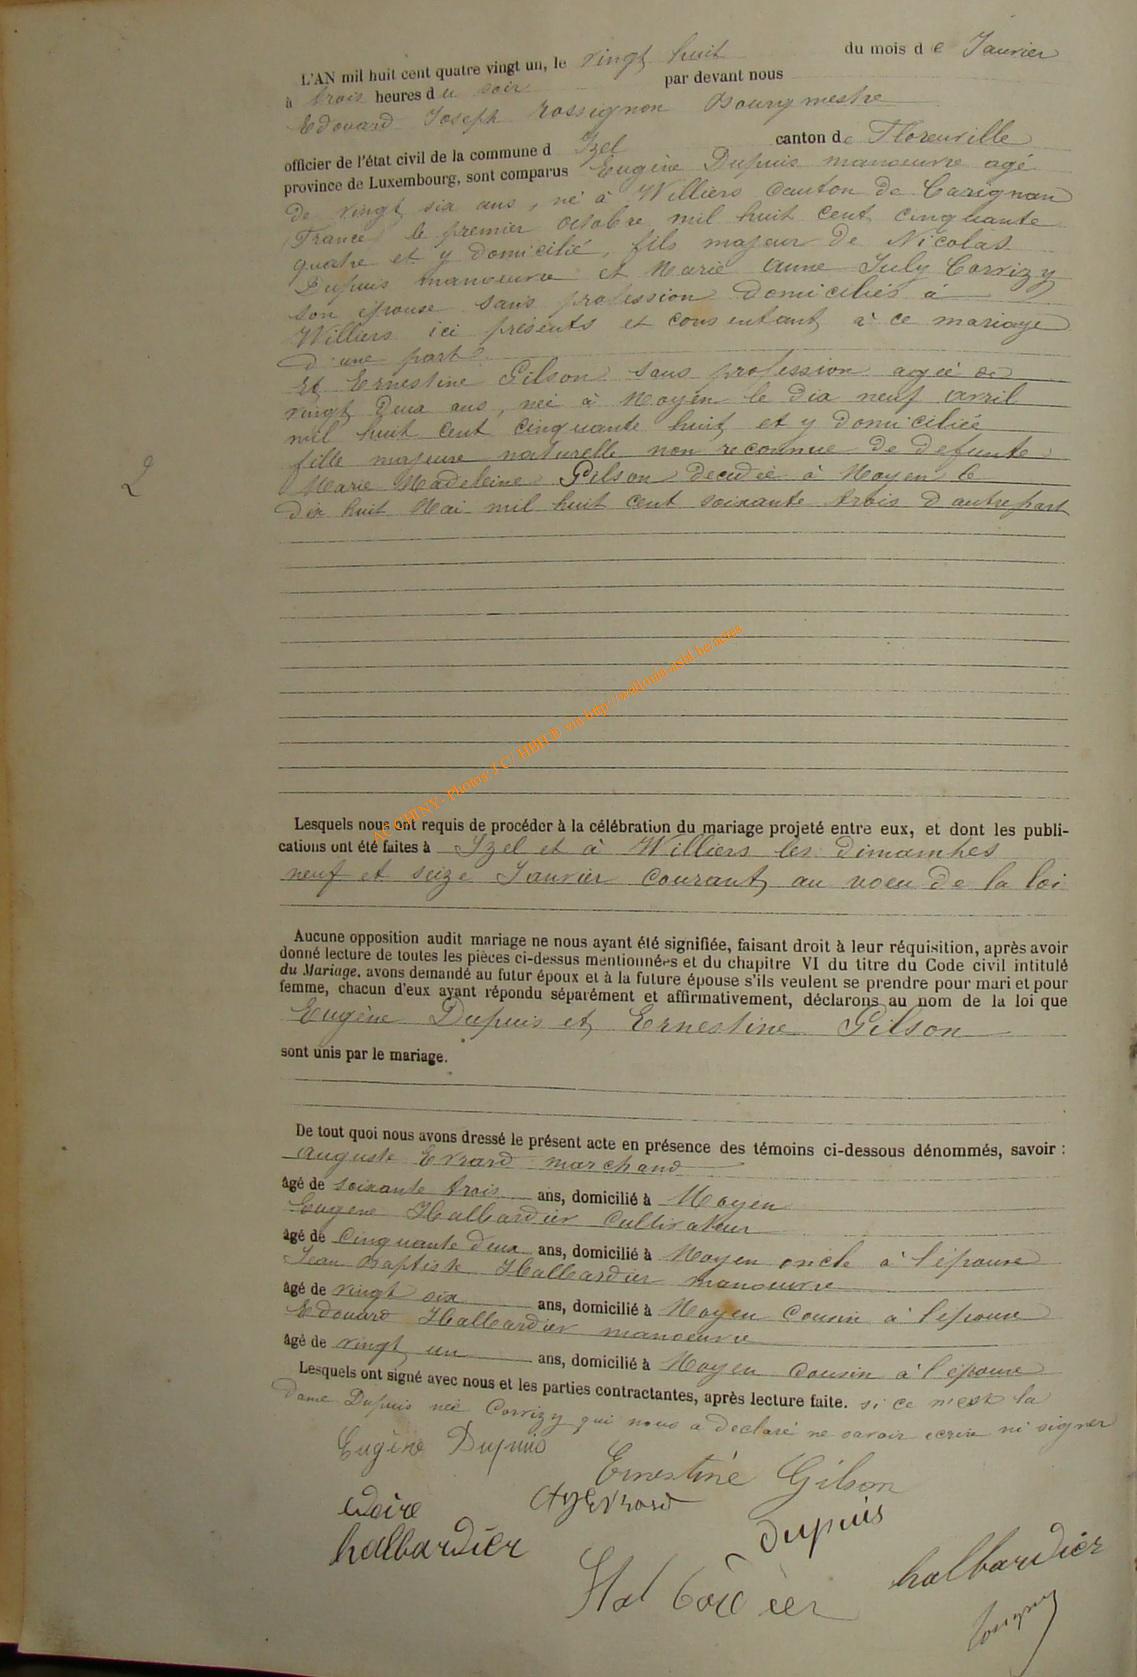 L'AN mil huit cent quatre vingt un, le vingt huit du mois de Janvier
à trois heures du soir par devant nous
Edouard Joseph Rossignon Bourgmestre
officier de l'état civil de la commune d Izel canton de Florenville
province de Luxembourg, sont comparus Eugène Dupuis manoeuvre agé
de vingt six ans, né à Williers Canton de Carignan
(France) le premier octobre mil huit cent cinquante
quatre et y domicilié, fils majeur de Nicolas
Dupuis manoeuvre et Marie Anne July Corrizy
son épouse sans profession domiciliés à
Williers ici présents et consentant à ce mariage
d'une part.
Et Ernestine Gilson sans profession agée de
vingt deux ans, née à Moyen le dix neuf avril
mil huit cent cinquante huit et y domiciliée
fille majeure naturelle non reconnue de defunte
Marie Madeleine Gilson decedée à Moyen le
dix huit Mai mil huit cent soixante trois d'autre part
2
AC CHINY - Photos J.C/ HBH © via http://wallonia-asbl.be/actes
Lesquels nous ont requis de procéder à la célébration du mariage projeté entre eux, et dont les publi-
cations ont été faites à Izel et à Williers les dimamhes
neuf et seize Janvier courant, au voeu de la loi
Aucune opposition audit mariage ne nous ayant été signifiée, faisant droit à leur réquisition, après avoir
donné lecture de toutes les pièces ci-dessus mentionnées et du chapitre VI du titre du Code civil intitulé
du Mariage, avons demandé au futur époux et à la future épouse s'ils veulent se prendre pour mari et pour
femme, chacun d'eux ayant répondu séparément et affirmativement, déclarons au nom de la loi que
Eugène Dupuis et Ernestine Gilson
sont unis par le mariage.
De tout quoi nous avons dressé le présent acte en présence des témoins ci-dessous dénommés, savoir :
Auguste Evrard marchand
âgé de soixante trois ans, domicilié à Moyen
Eugène Halbardier Cultivateur
âgé de cinquante deux ans, domicilié à Moyen oncle à l'épouse
Jean Baptiste Halbardier manoeuvre
âgé de vingt six ans, domicilié à Moyen Cousin à l'épouse
Edouard Halbardier manoeuvre
âgé de vingt un ans, domicilié à Moyen Cousin à l'épouse
Lesquels ont signé avec nous et les parties contractantes, après lecture faite. si ce n'est la
dame Dupuis née Corrizy qui nous a declaré ne savoir ecrire ni signer
Eugène Dupuis
Ernestine Gilson
Evrard
dupuis
halbardier
halbardier